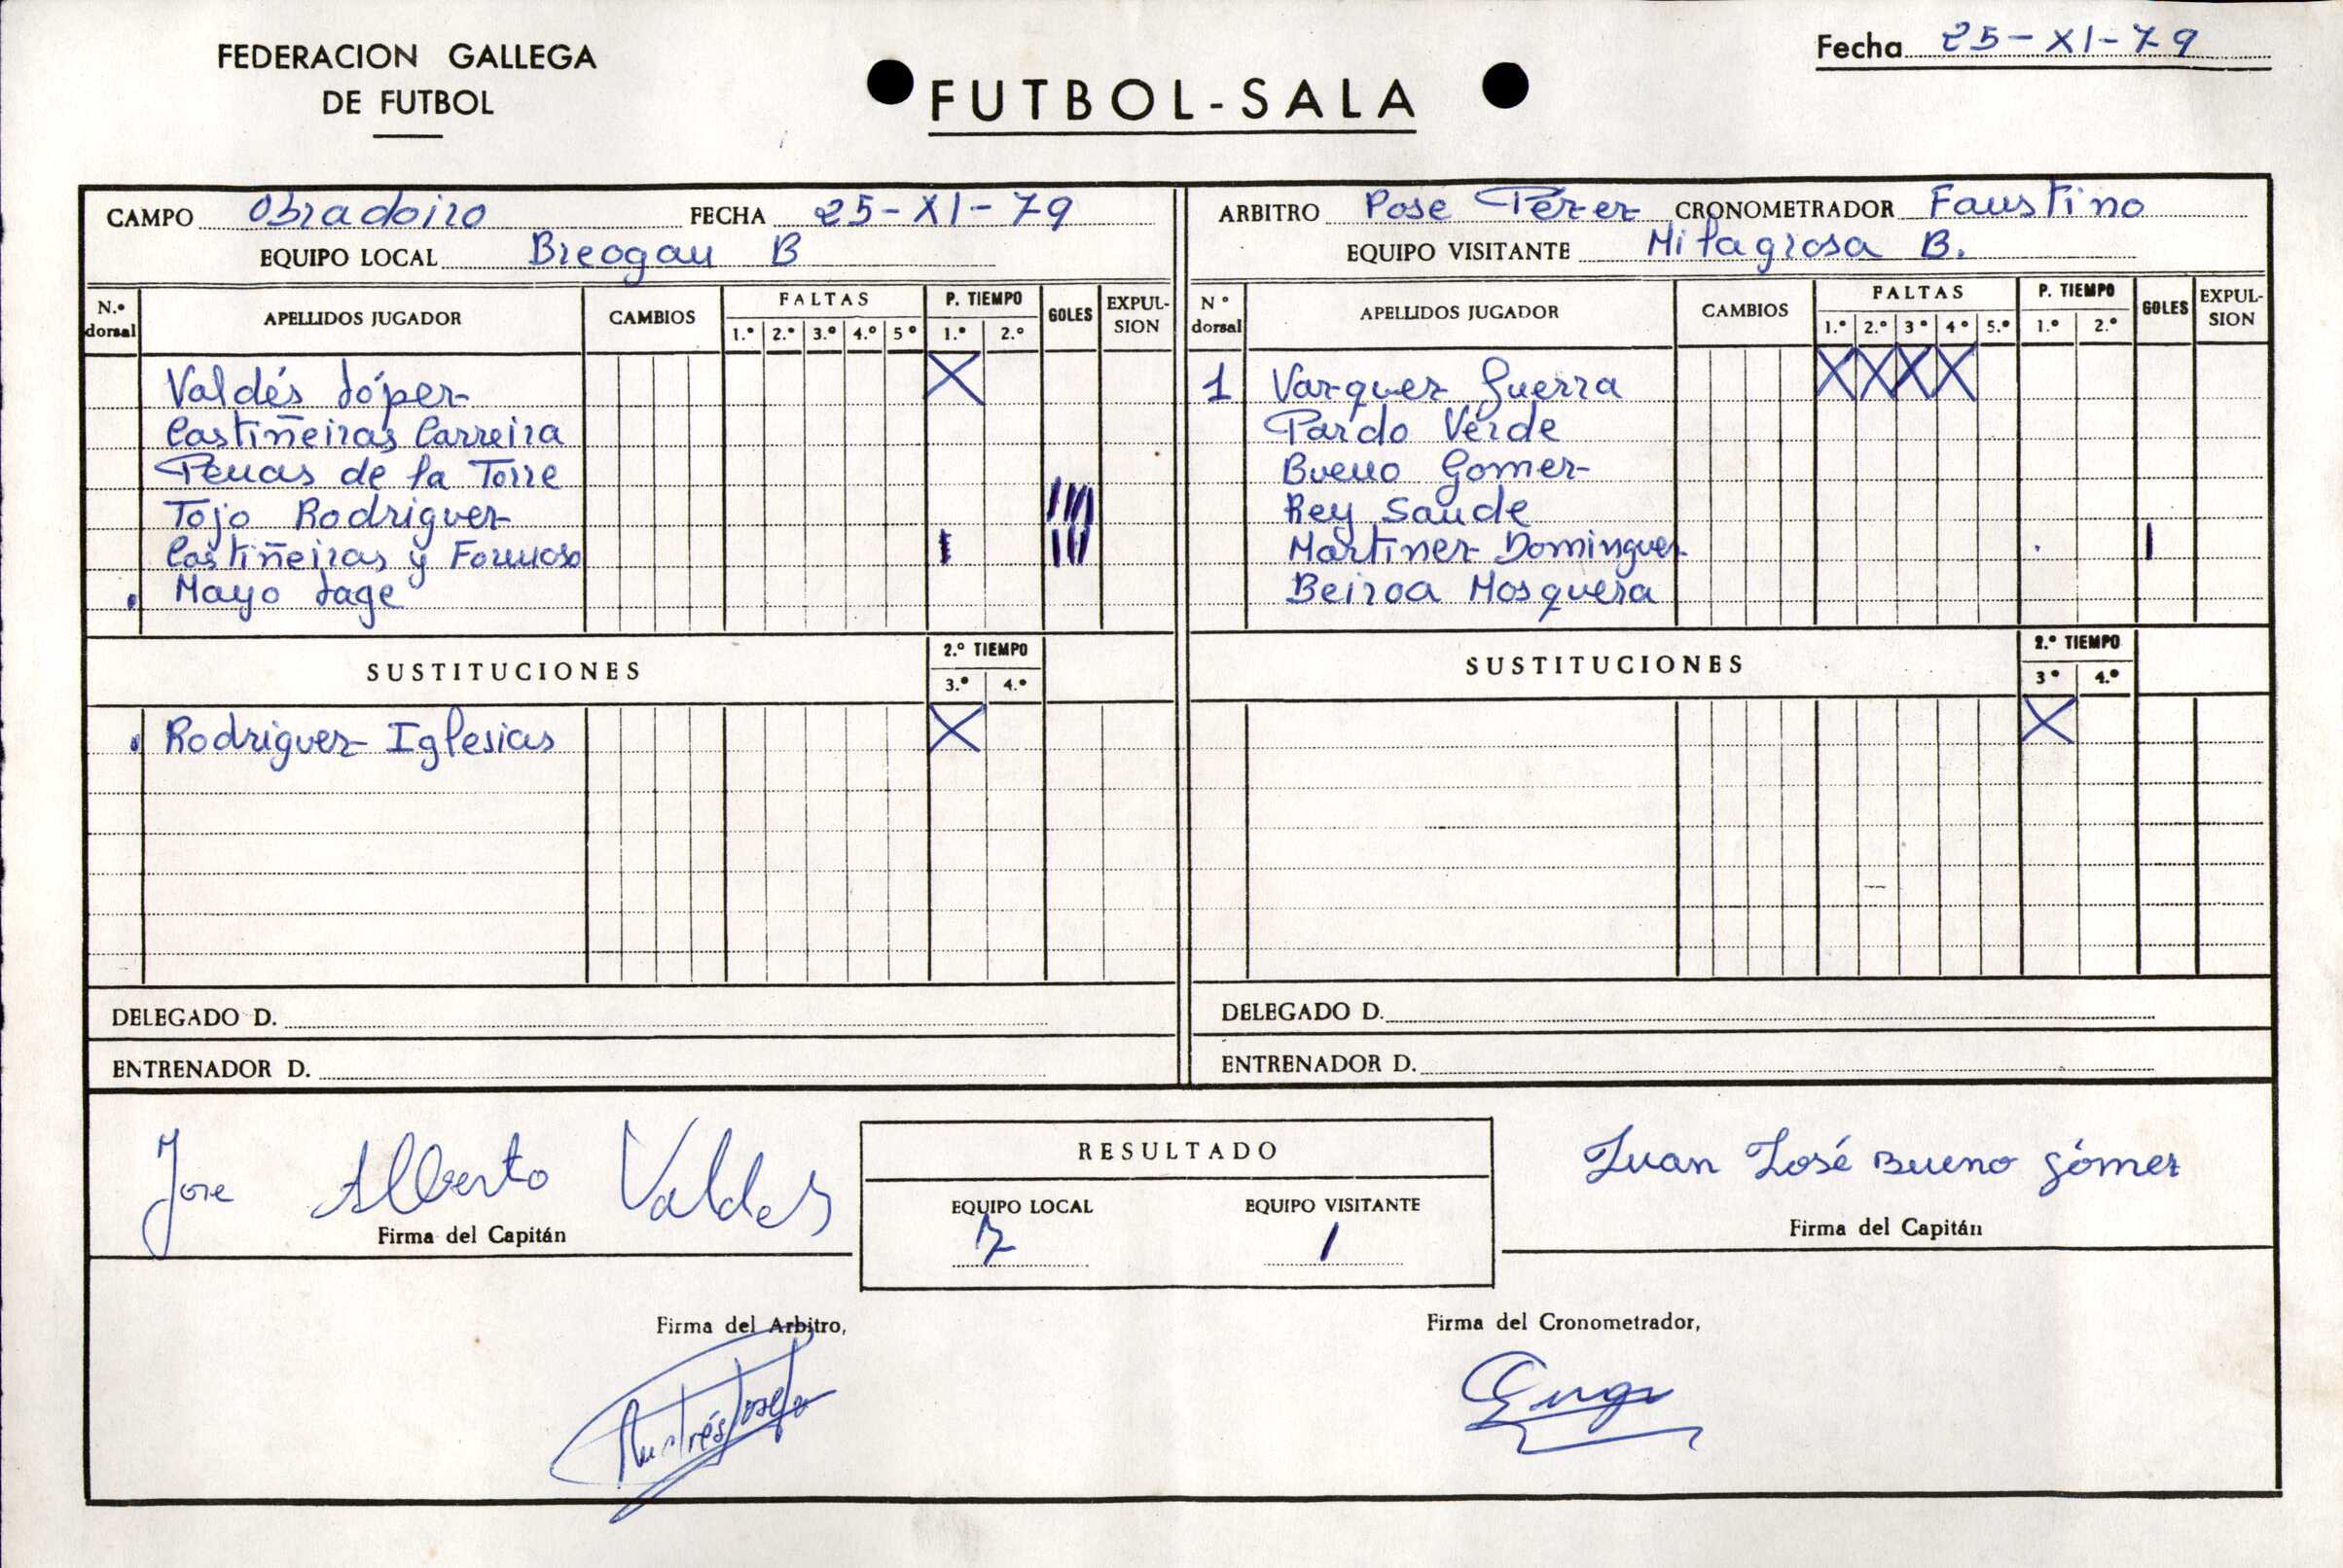 FEDERACION GALLEGA
DE FUTBOL
FUTBOL-SALA
Fecha 25-XI-79
CAMPO Obradoiro FECHA 25-XI-79
EQUIPO LOCAL Breogan B
N.º dorsal APELLIDOS JUGADOR CAMBIOS FALTAS 1.º 2.º 3.º 4.º 5º P. TIEMPO 1.º 2.º GOLES EXPULSION
Valdés López X
Castiñeiras Carreira
Penas de la Torre
Tojo Rodriguez
Castiñeiras y Formoso
Mayo Lage
SUSTITUCIONES 2.º TIEMPO 3.º 4.º
Rodriguez Iglesias X
DELEGADO D.
ENTRENADOR D.
ARBITRO Pose Pérez CRONOMETRADOR Faustino
EQUIPO VISITANTE Milagrosa B.
Nº dorsal APELLIDOS JUGADOR CAMBIOS FALTAS 1.º 2.º 3º 4º 5.º P. TIEMPO 1.º 2.º GOLES EXPULSION
1 Vazquez Guerra X X X X
Pardo Verde
Bueno Gomez
Rey Saude
Martinez Dominguez I
Beiroa Mosquera
SUSTITUCIONES 2.º TIEMPO 3º 4.º
X
DELEGADO D.
ENTRENADOR D.
Jose Alberto Valdes
Firma del Capitán
RESULTADO
EQUIPO LOCAL EQUIPO VISITANTE
7 1
Juan José Bueno Gómez
Firma del Capitán
Firma del Arbitro,
Firma del Cronometrador,